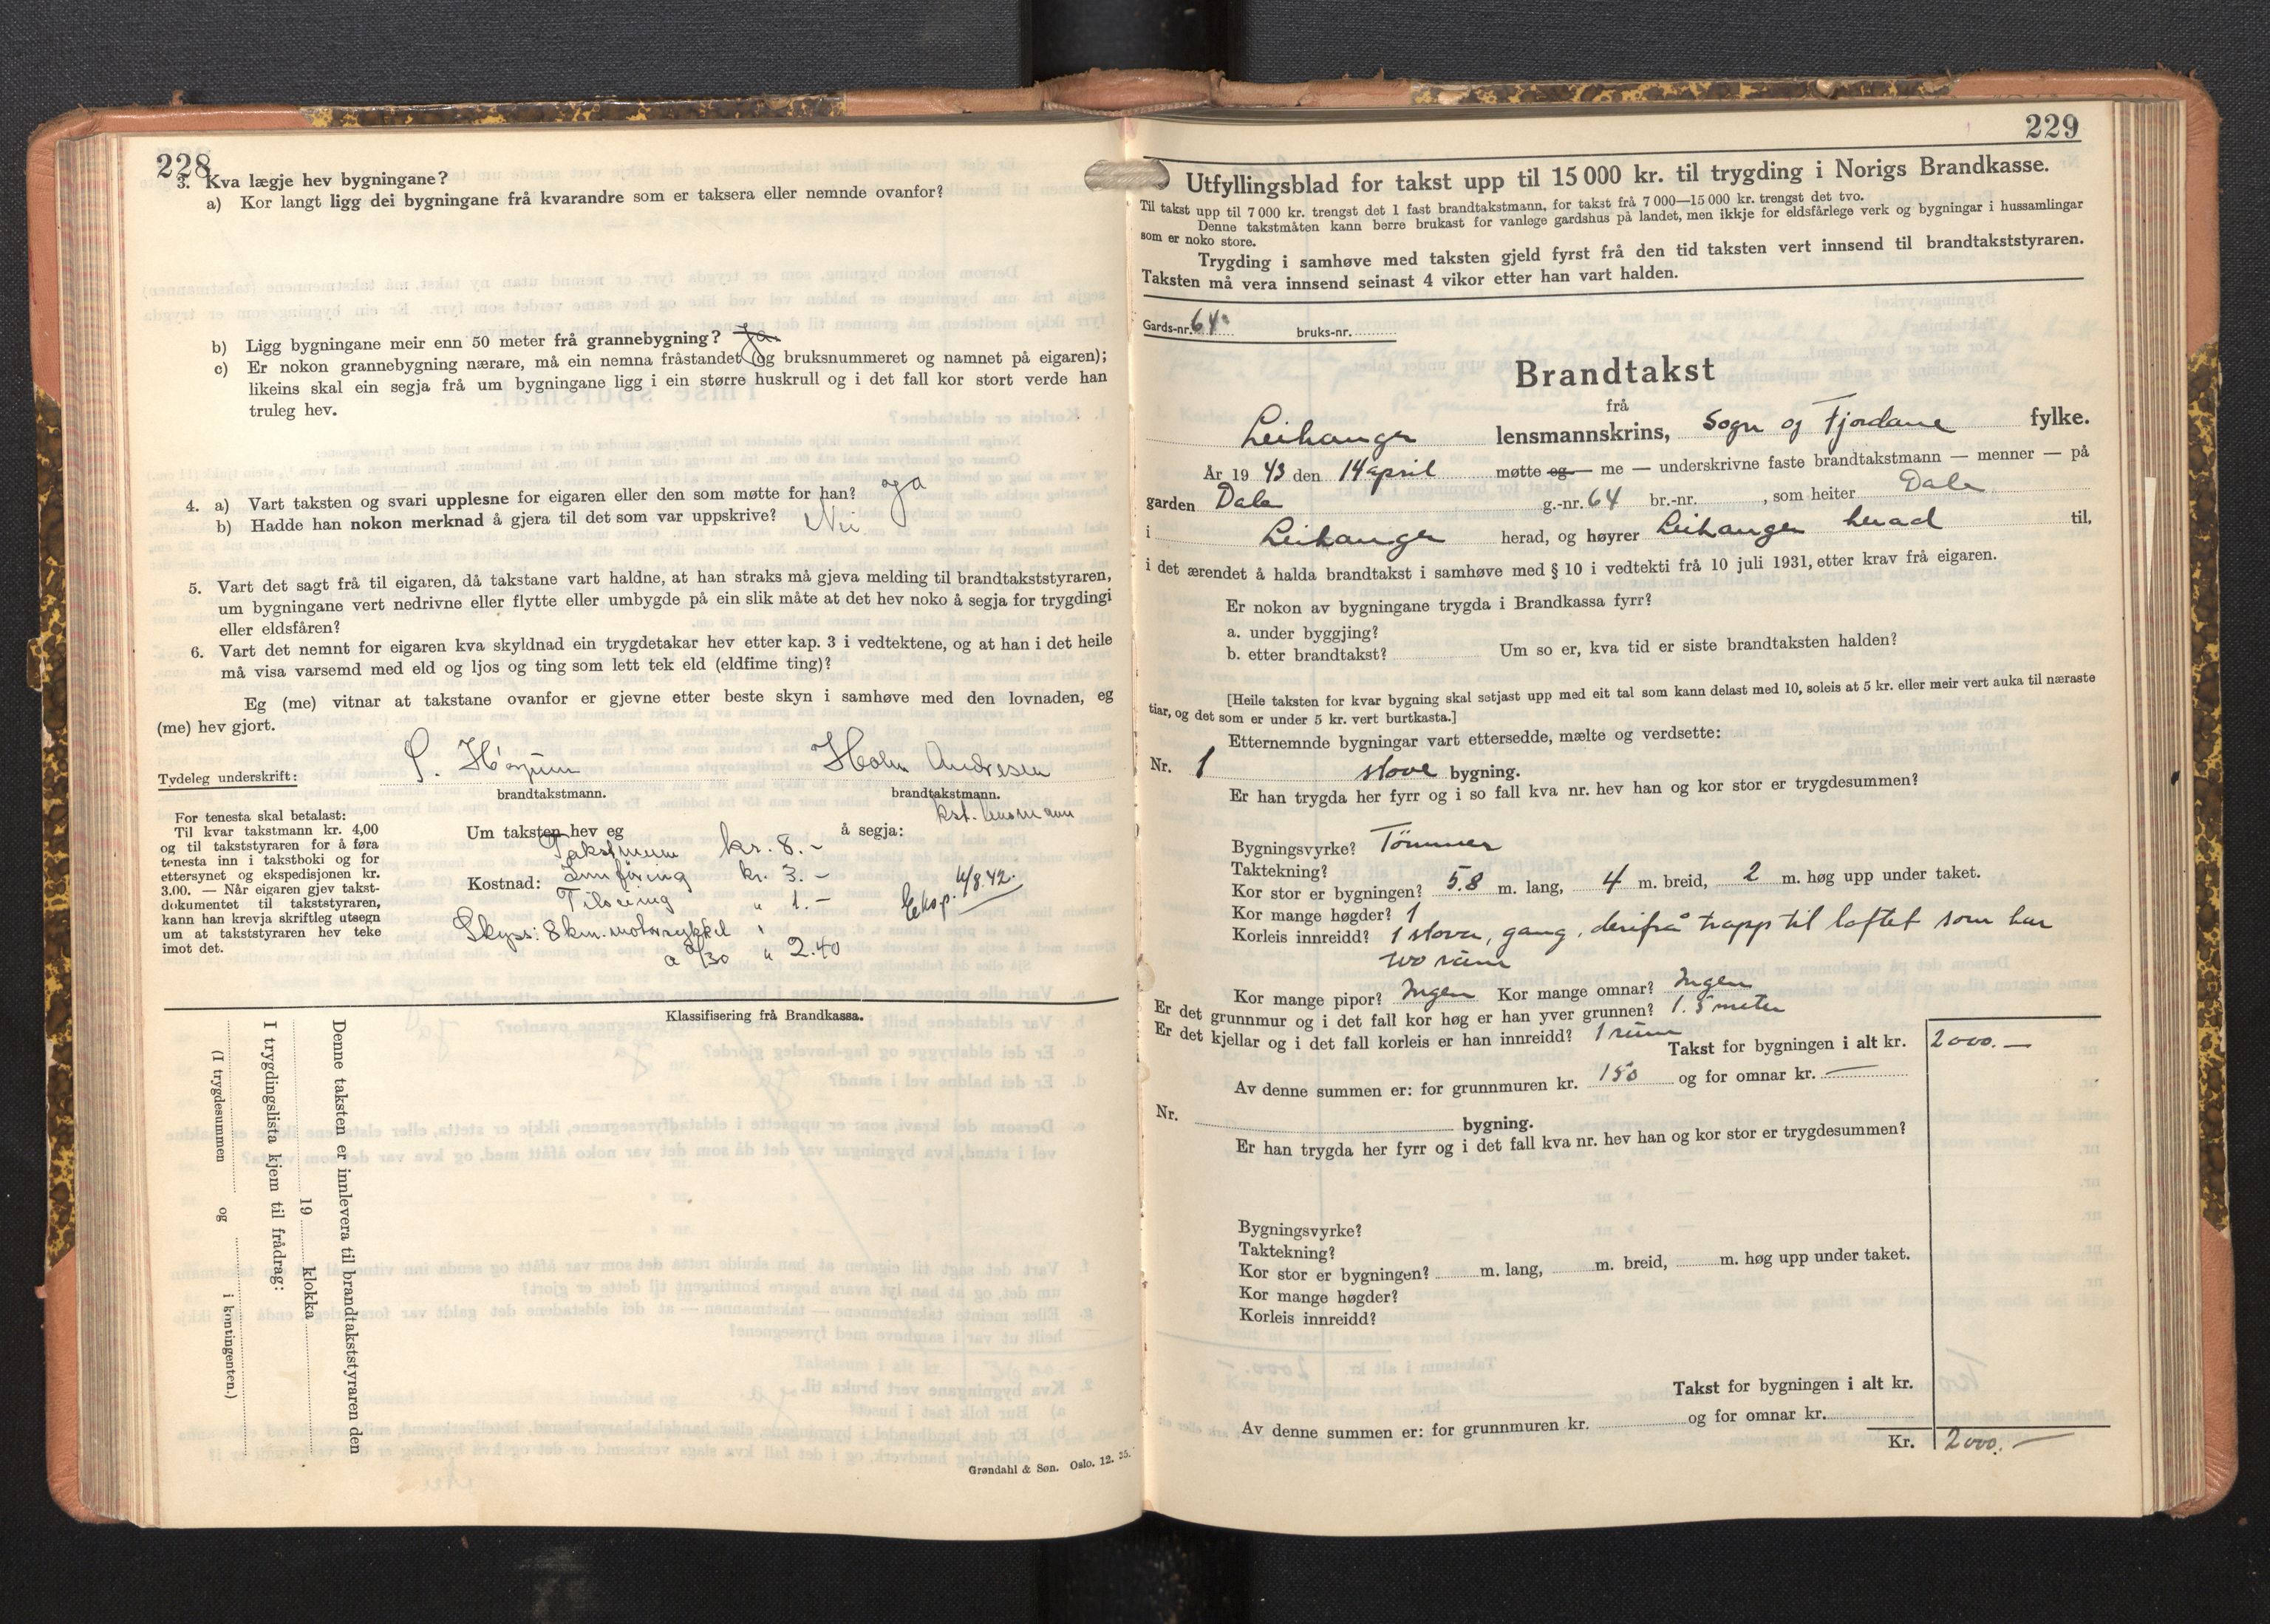 228
3. Kva lægje hev bygningane?
a) Kor langt ligg dei bygningane frå kvarandre som er taksera eller nemnde ovanfor?
b) Ligg bygningane meir enn 50 meter frå grannebygning? Ja.
c) Er nokon grannebygning nærare, må ein nemna fråstandet (og bruksnummeret og namnet på eigaren);
likeins skal ein segja frå um bygningane ligg i ein større huskrull og i det fall kor stort verde han
truleg hev.
4. a) Vart taksten og svari upplesne for eigaren eller den som møtte for han? Ja
b) Hadde han nokon merknad å gjera til det som var uppskrive? Nei
5. Vart det sagt frå til eigaren, då takstane vart haldne, at han straks må gjeva melding til brandtakststyraren,
um bygningane vert nedrivne eller flytte eller umbygde på ein slik måte at det hev noko å segja for trygdingi
eller eldsfåren?
6. Vart det nemnt for eigaren kva skyldnad ein trygdetakar hev etter kap. 3 i vedtektene, og at han i det heile
må visa varsemd med eld og ljos og ting som lett tek eld (eldfime ting)?
Eg (me) vitnar at takstane ovanfor er gjevne etter beste skyn i samhøve med den lovnaden, eg
(me) hev gjort.
Tydeleg underskrift: Holm Andresen
brandtakstmann. brandtakstmann.
For tenesta skal betalast:
Til kvar takstmann kr. 4,00
og til takststyraren for å føra
tenesta inn i takstboki og for
ettersynet og ekspedisjonen kr.
3.00. — Når eigaren gjev takst-
dokumentet til takststyraren,
kann han krevja skriftleg utsegn
um at takststyraren hev teke
imot det.
Um taksten hev eg å segja:
Takstmenn kr. 8.-
Kostnad: Innføring kr. 3.-
" 1.-
Eksp. 14/8.42.
Skyss: 8 km. motorsykkel
a 0/30 " 2.40
Klassifisering frå Brandkassa.
Denne taksten er innlevera til brandtakststyraren den
19 klokka
I trygdingslista kjem til frådrag:
(I trygdesummen og i kontingenten.)
Grøndahl & Søn. Oslo. 12. 35.
229
Utfyllingsblad for takst upp til 15 000 kr. til trygding i Norigs Brandkasse.
Til takst upp til 7 000 kr. trengst det 1 fast brandtakstmann, for takst frå 7 000—15 000 kr. trengst det tvo.
Denne takstmåten kann berre brukast for vanlege gardshus på landet, men ikkje for eldsfårlege verk og bygningar i hussamlingar
som er noko store.
Trygding i samhøve med taksten gjeld fyrst frå den tid taksten vert innsend til brandtakststyraren.
Taksten må vera innsend seinast 4 vikor etter han vart halden.
Gards-nr. 64 bruks-nr.
Brandtakst
frå
Leikanger lensmannskrins, Sogn og Fjordane fylke.
År 1943 den 14 april møtte eg — me — underskrivne faste brandtakstmann — menner — på
garden Dale g.-nr. 64 br.-nr. , som heiter Dale
i Leikanger herad, og høyrer Leikanger herad til,
i det ærendet å halda brandtakst i samhøve med § 10 i vedtekti frå 10 juli 1931, etter krav frå eigaren.
Er nokon av bygningane trygda i Brandkassa fyrr?
a. under byggjing?
b. etter brandtakst? Um so er, kva tid er siste brandtaksten halden?
[Heile taksten for kvar bygning skal setjast upp med eit tal som kann delast med 10, soleis at 5 kr. eller meir vert auka til næraste
tiar, og det som er under 5 kr. vert burtkasta.]
Etternemnde bygningar vart ettersedde, mælte og verdsette:
Nr. 1 stove bygning.
Er han trygda her fyrr og i so fall kva nr. hev han og kor stor er trygdesummen?
Bygningsvyrke? Tömmer
Taktekning?
Kor stor er bygningen? 5.8 m. lang, 4 m. breid, 2 m. høg upp under taket.
Kor mange høgder? 1
Korleis innreidd? 1 stova, gang, derifrå trapp til loftet som har
two rum
Kor mange pipor? Ingen Kor mange omnar? Ingen
Er det grunnmur og i det fall kor høg er han yver grunnen? 1.5 meter
Er det kjellar og i det fall korleis er han innreidd? 1 rum
Takst for bygningen i alt kr. 2000.—
Av denne summen er: for grunnmuren kr. 150 og for omnar kr. —
Nr. bygning.
Er han trygda her fyrr og i det fall kva nr. hev han og kor stor er trygdesummen?
Bygningsvyrke?
Taktekning?
Kor stor er bygningen? m. lang, m. breid, m. høg upp under taket.
Kor mange høgder?
Korleis innreidd?
Takst for bygningen i alt kr.
Av denne summen er: for grunnmuren kr. og for omnar kr.
Kr. 2000.—